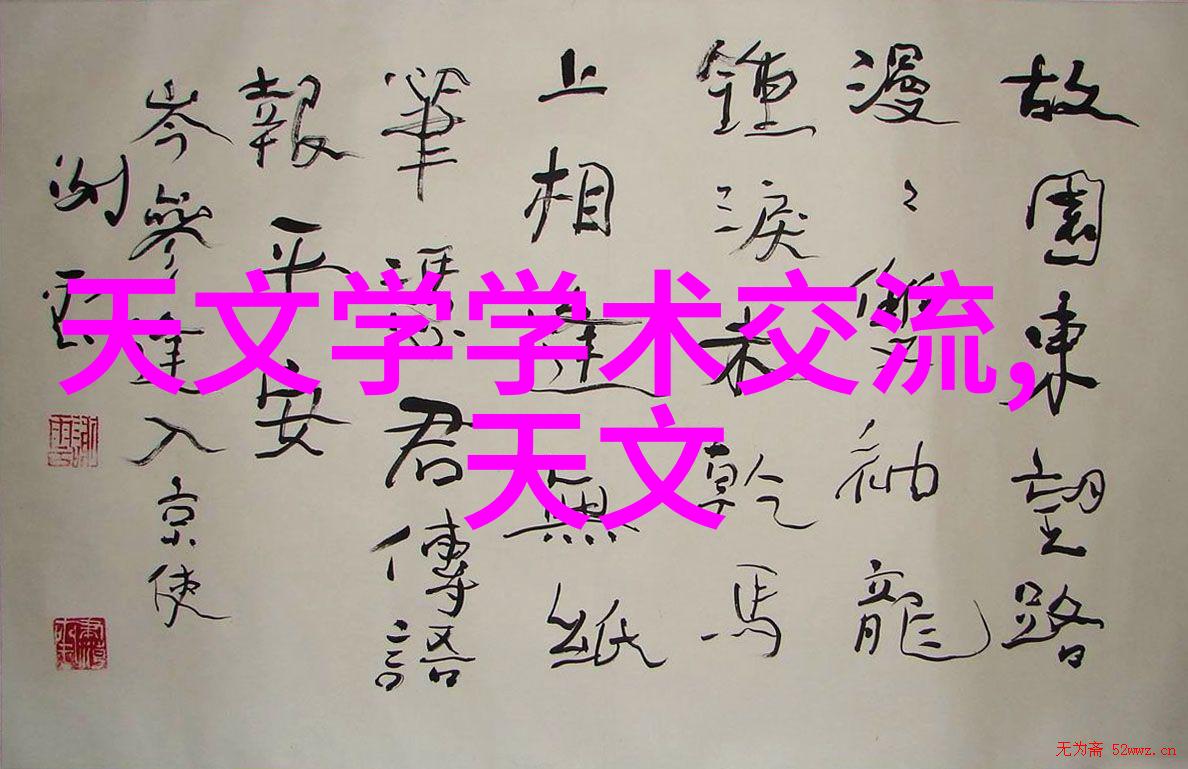 故園東望路
漫〻雙袖龍
鍾淚未乾馬
上相逢無紙
筆憑君傳語
報平安
岑參逢入京使
天文学学术交流,
天文
无为斋 52wwz.cn